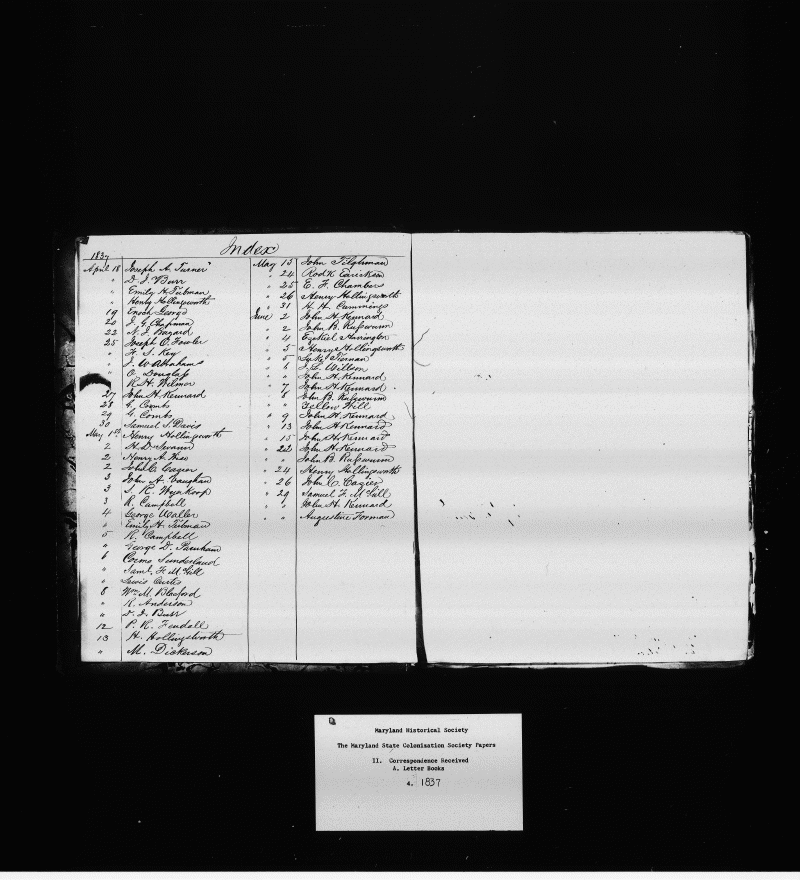 Index
1837
April 18 Joseph A. Turner
" D. I. Burr
" Emily H. Tubman
" Henry Hollingsworth
19 Enoch George
20 J. G. Chapman
22 N. J. Bayard
25 Joseph O. Fowler
" F. S. Key
" J. W. Abrahams
" O. Douglass
" R. H. Wilmer
27 John H. Kennard
28 G. Combs
29 G. Combs
30 Samuel S. Davis
May 1st Henry Hollingsworth
2 H. D.
2 Henry A. Wise
2 John C. Cazier
3 John A. Vaughan
3 S. R. Wynkoop
3 R. Campbell
4 George Waller
" Emily H. Tubman
5 R. Campbell
" George D. Parnham
6 Cosmo Sunderland
" Saml. F. McGill
" Lewis Curtis
8 Wm. M. Blackford
" R. Anderson
" D. I. Burr
12 P. R. Fendall
13 H. Hollingsworth
" M. Dickerson
May 13 John Tilghman
" 24 Rodk Earickson
" 25 E. F. Chambers
" 26 Henry Hollingsworth
" 31 H. H. Cummings
June 2 John H. Kennard
" 2 John B. Russwurm
" 4 Ezekiel Harrington
" 5 Henry Hollingsworth
" 5 Luke Tiernan
" 6 J. S. Willson
" " John H. Kennard
" 7 John H. Kennard
" 8 John B. Russwurm
" " Yellow Will
" 9 John H. Kennard
" 13 John H. Kennard
" 15 John H. Kennard
" 22 John H. Kennard
" " John B. Russwurm
" 24 Henry Hollingsworth
" 26 John C. Cazier
" 29 Samuel F. McGill
" " John H. Kennard
" " Augustine Forman
Maryland Historical Society
The Maryland State Colonization Society Papers
II. Correspondence Received
A. Letter Books
4. 1837